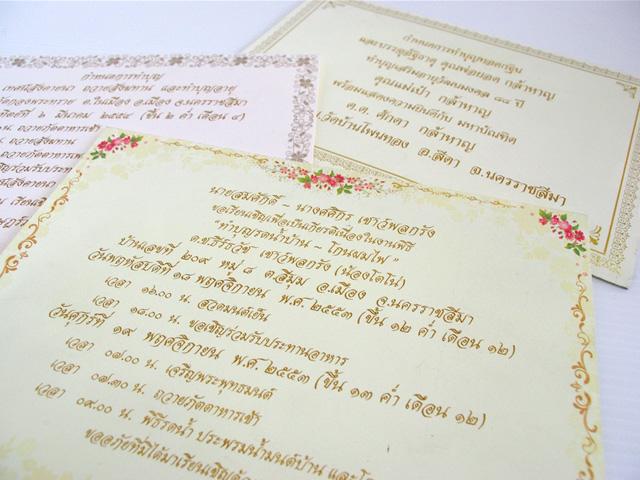 กำหนดการทำบุญทอดกฐิน
และบรรจุอัฐิธาตุ คุณพ่อยอด กล้าหาญ
ทำบุญเสริมอายุวัฒนมงคล ๘๘ ปี
คุณแม่เป้า กล้าหาญ
พร้อมแสดงความยินดีกับ มหาบัณฑิต
ด.ต. ศักดา กล้าหาญ
(วัดบ้านโพนทอง อ.สีดา จ.นครราชสีมา
กำหนดการทำบุญ
เทศน์สังคายนา ถวายสังฆทาน และทำบุญอายุ
ต.ในเมือง อ.เมือง จ.นครราชสีมา
๖ มีนาคม ๒๕๕๔ (ขึ้น ๒ ค่ำ เดือน ๔)
น. ถวายภัตตาหารเพล
น. ถวายสังฆทาน
นายสมศักดิ์ - นางศศิกร เชาว์พลกรัง
ขอเรียนเชิญเพื่อเป็นเกียรติเนื่องในงานพิธี
"ทำบุญรดน้ำบ้าน - โกนผมไฟ"
ด.ช.ธีรวัช เชาว์พลกรัง (น้องโตโน่)
บ้านเลขที่ ๒๐๙ หมู่ ๘ ต.สีมุม อ.เมือง จ.นครราชสีมา
วันพฤหัสบดีที่ ๑๘ พฤศจิกายน พ.ศ. ๒๕๕๓ (ขึ้น ๑๒ ค่ำ เดือน ๑๒)
เวลา ๑๖.๐๐ น. สวดมนต์เย็น
เวลา ๑๘.๐๐ น. ขอเชิญร่วมรับประทานอาหาร
วันศุกร์ที่ ๑๙ พฤศจิกายน พ.ศ. ๒๕๕๓ (ขึ้น ๑๓ ค่ำ เดือน ๑๒)
เวลา ๐๗.๐๐ น. เจริญพระพุทธมนต์
เวลา ๐๗.๓๐ น. ถวายภัตตาหารเช้า
เวลา ๐๙.๐๐ น. พิธีรดน้ำ ประพรมน้ำมนต์บ้าน และโก
ขออภัยที่มิได้มาเรียนเชิญด้ว